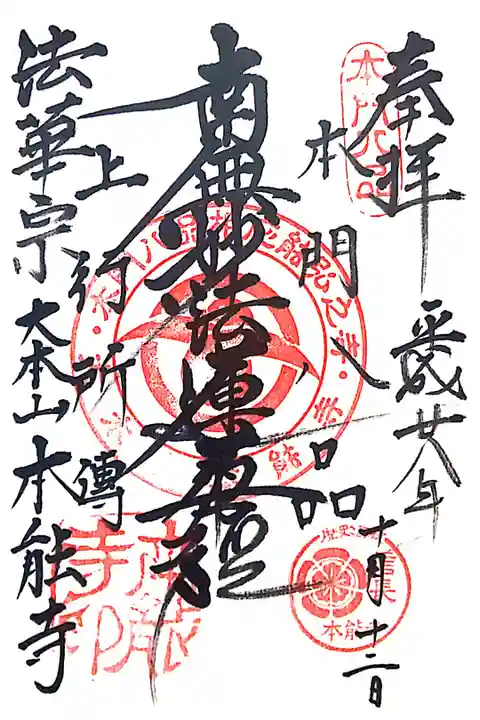 奉拝
平成廿八年
十月十二日
本門八品
南無妙法蓮華経
上行所傳
法華宗
大本山
本能寺
本門八品
信長
本能寺
本能寺印